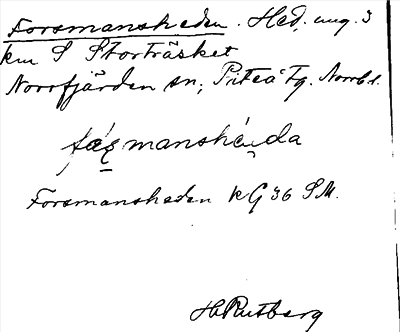 Forsmansheden. Hed, ung. 3
km S Storträsket
Norrfjärden sn, Piteå tg. Norrb l.
manshéda
Forsmansheden kG36 SM.
H Rutberg